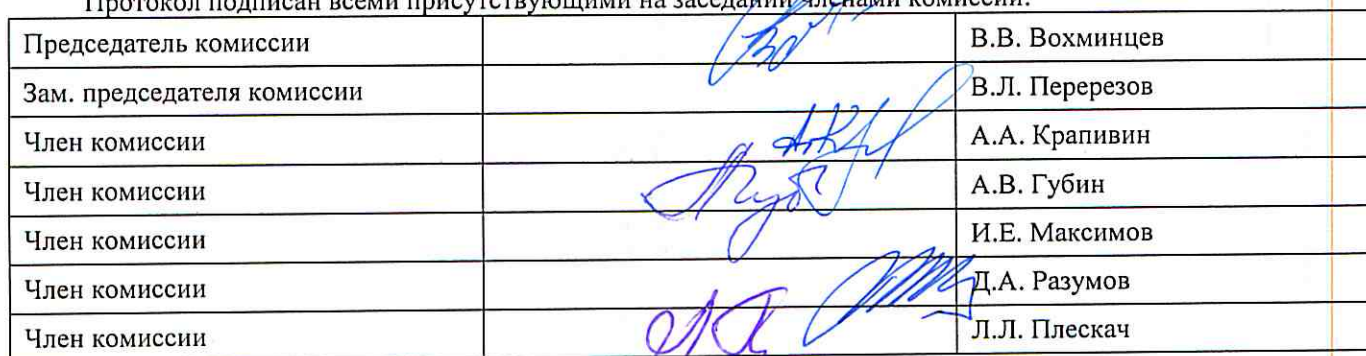 Протокол подписан всеми присутствующими на заседании членами комиссии:
Председатель комиссии В.В. Вохминцев
Зам. председателя комиссии В.Л. Перерезов
Член комиссии А.А. Крапивин
Член комиссии А.В. Губин
Член комиссии И.Е. Максимов
Член комиссии Д.А. Разумов
Член комиссии Л.Л. Плескач